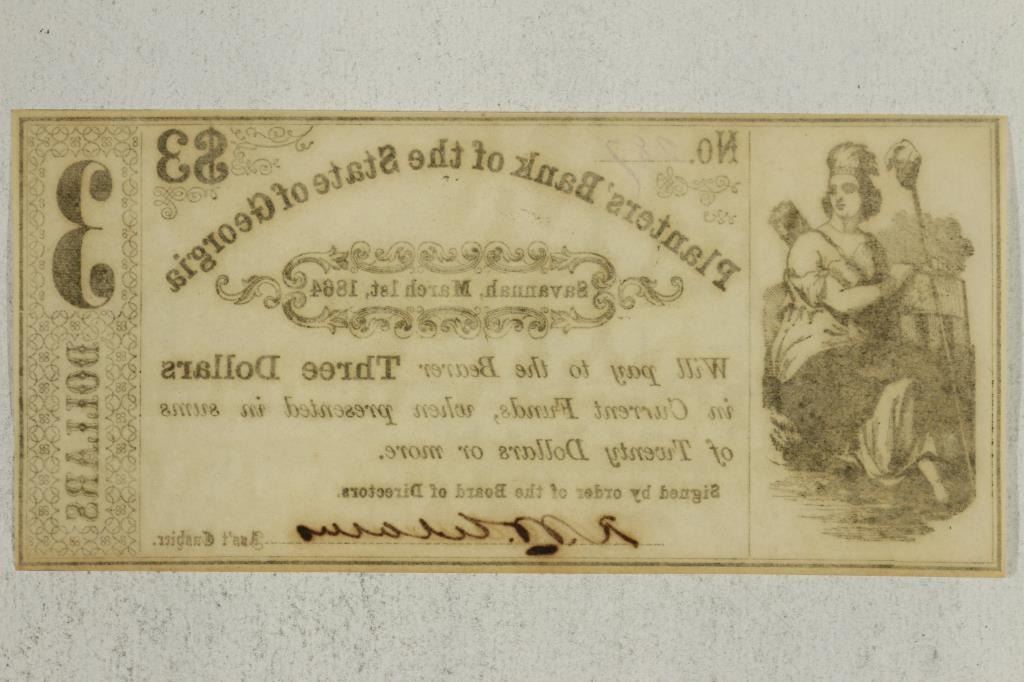 $3
No.
Planters' Bank of the State of Georgia
Savannah, March 1st, 1864
Will pay to the Bearer Three Dollars
in Current Funds, when presented in sums
of Twenty Dollars or more.
Signed by order of the Board of Directors.
Ass't Cashier.
3
DOLLARS